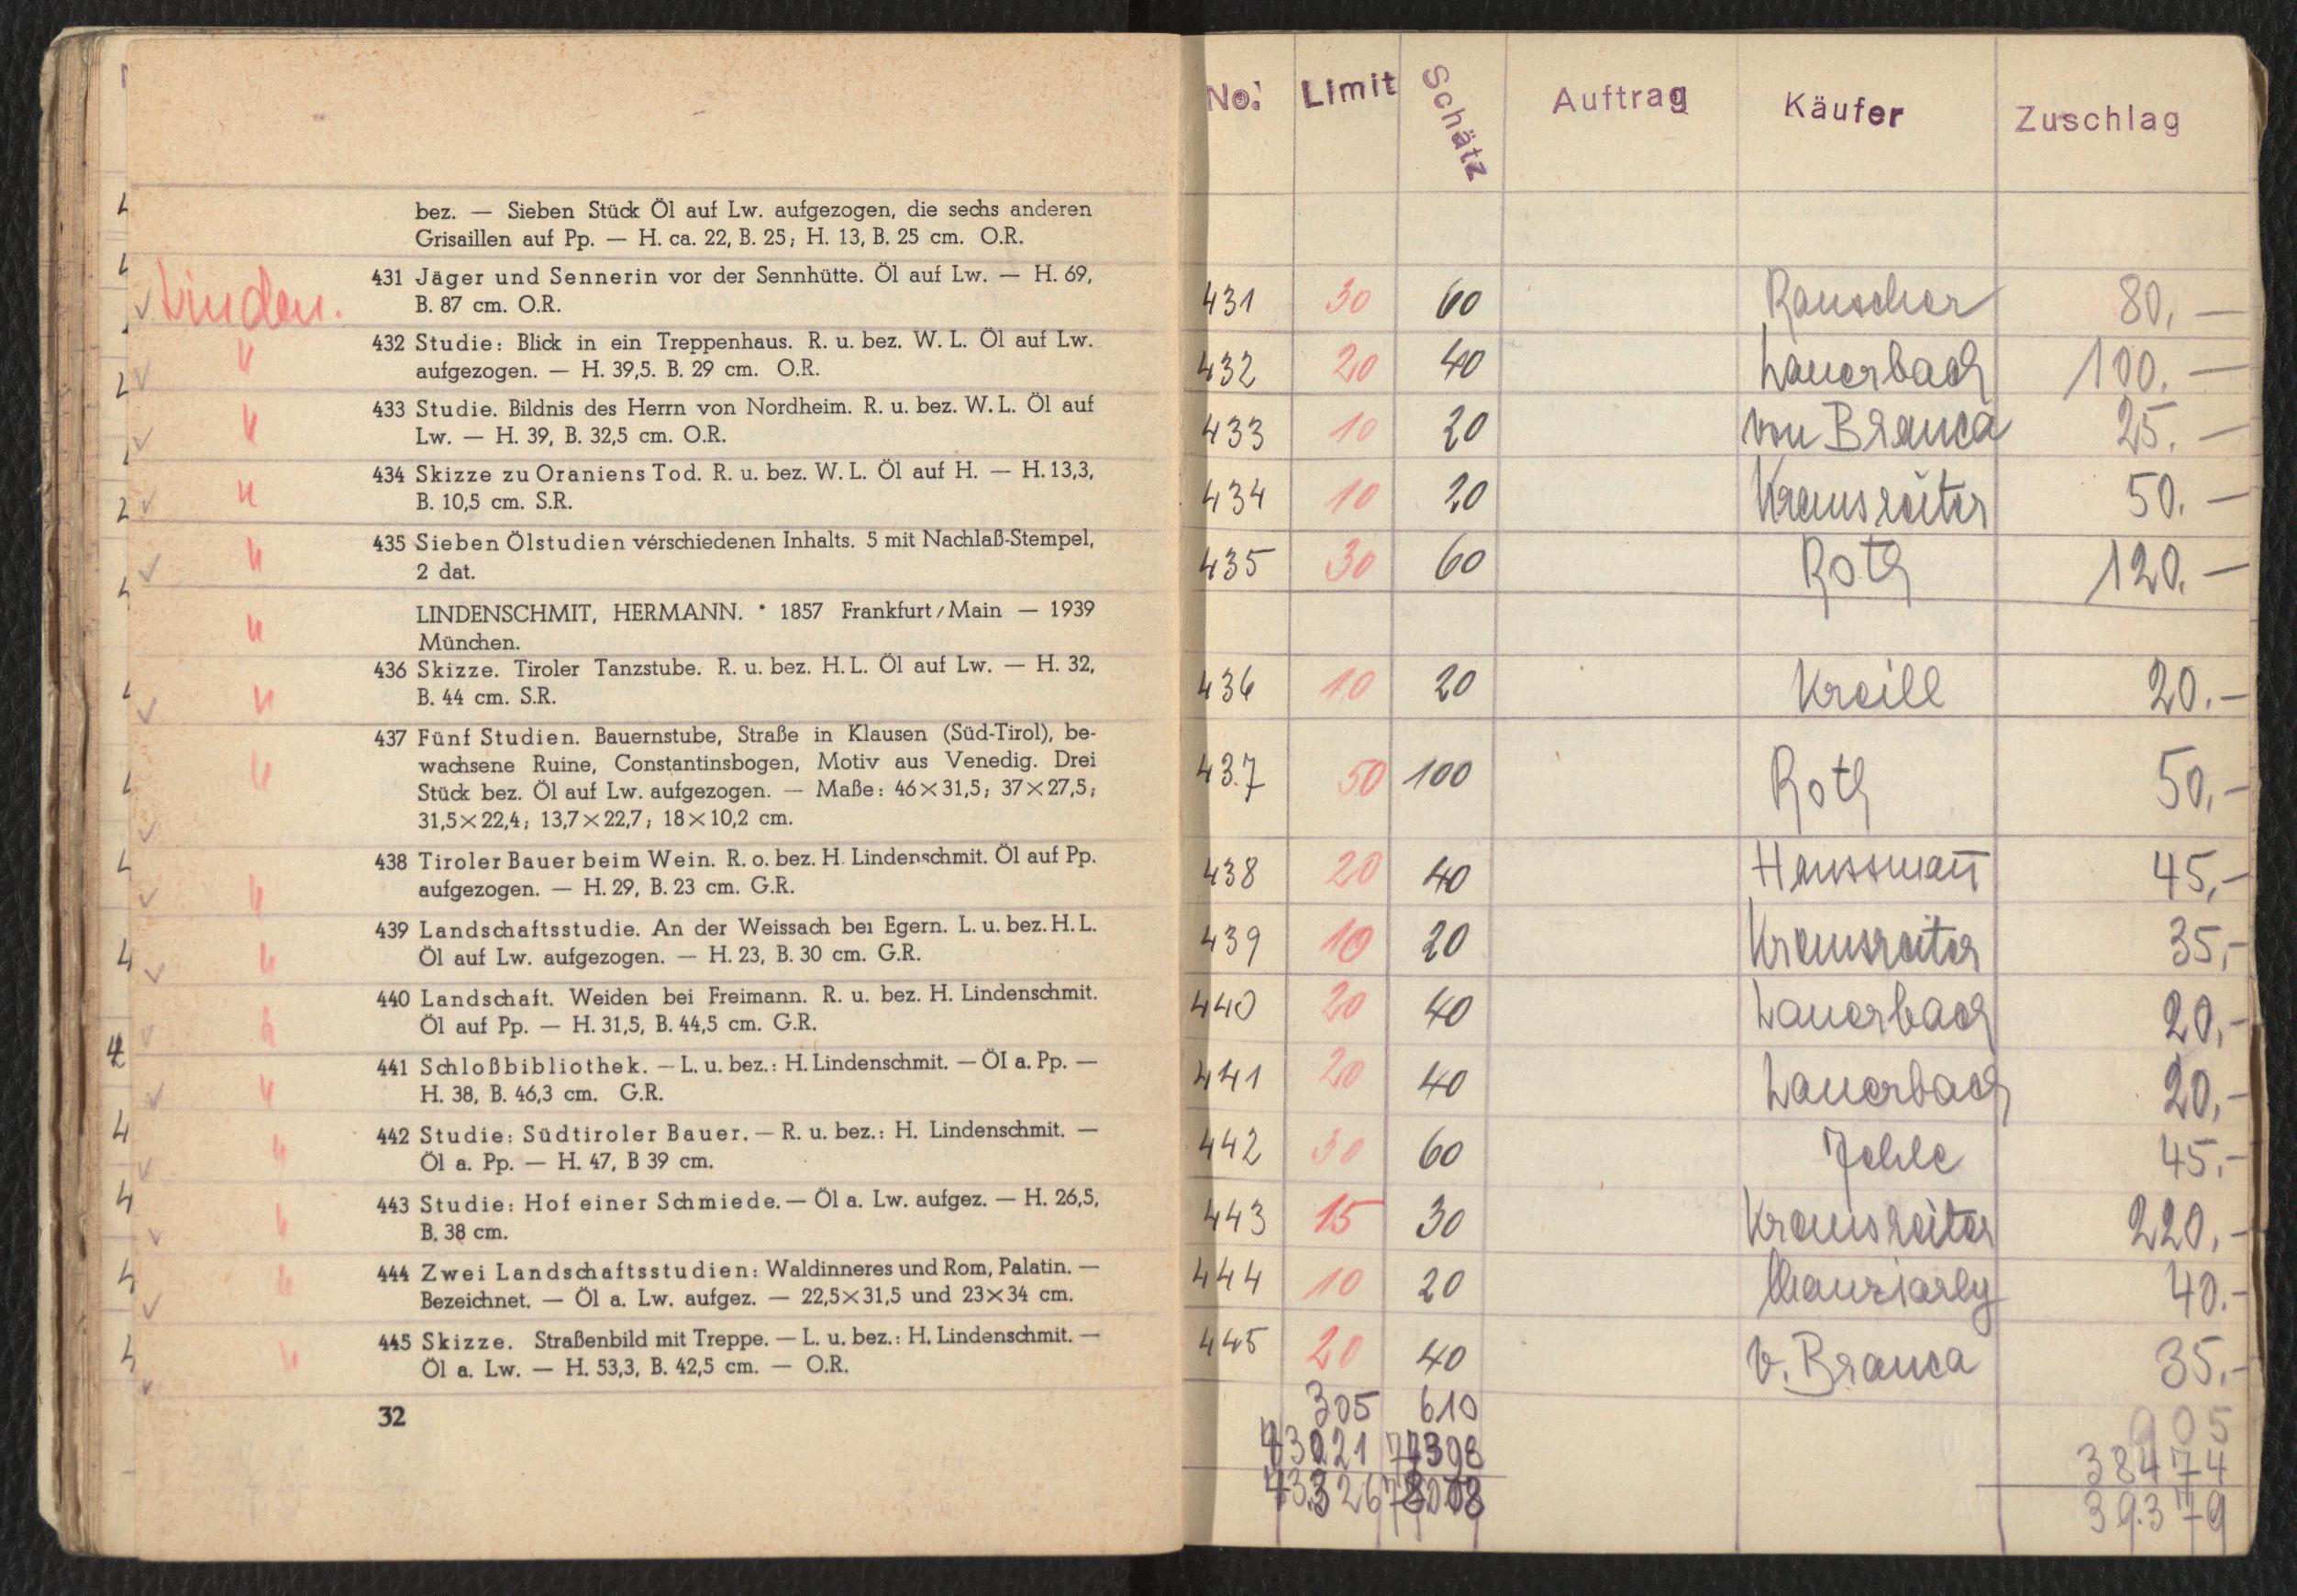 bez. — Sieben Stück Öl auf Lw. aufgezogen, die sechs anderen
Grisaillen auf Pp. — H. ca. 22, B. 25; H. 13, B. 25 cm. O.R.
Linden.
431 Jäger und Sennerin vor der Sennhütte. Öl auf Lw. — H. 69,
B. 87 cm. O.R.
432 Studie: Blick in ein Treppenhaus. R. u. bez. W. L. Öl auf Lw.
aufgezogen. — H. 39,5. B. 29 cm. O.R.
433 Studie. Bildnis des Herrn von Nordheim. R. u. bez. W. L. Öl auf
Lw. — H. 39, B. 32,5 cm. O.R.
434 Skizze zu Oraniens Tod. R. u. bez. W. L. Öl auf H. — H. 13,3,
B. 10,5 cm. S.R.
435 Sieben Ölstudien verschiedenen Inhalts. 5 mit Nachlaß-Stempel,
2 dat.
LINDENSCHMIT, HERMANN. * 1857 Frankfurt/Main — 1939
München.
436 Skizze. Tiroler Tanzstube. R. u. bez. H. L. Öl auf Lw. — H. 32,
B. 44 cm. S.R.
437 Fünf Studien. Bauernstube, Straße in Klausen (Süd-Tirol), be-
wachsene Ruine, Constantinsbogen, Motiv aus Venedig. Drei
Stück bez. Öl auf Lw. aufgezogen. — Maße: 46×31,5; 37×27,5;
31,5×22,4; 13,7×22,7; 18×10,2 cm.
438 Tiroler Bauer beim Wein. R. o. bez. H. Lindenschmit. Öl auf Pp.
aufgezogen. — H. 29, B. 23 cm. G.R.
439 Landschaftsstudie. An der Weissach bei Egern. L. u. bez. H. L.
Öl auf Lw. aufgezogen. — H. 23, B. 30 cm. G.R.
440 Landschaft. Weiden bei Freimann. R. u. bez. H. Lindenschmit.
Öl auf Pp. — H. 31,5, B. 44,5 cm. G.R.
441 Schloßbibliothek. — L. u. bez.: H. Lindenschmit. — Öl a. Pp. —
H. 38, B. 46,3 cm. G.R.
442 Studie: Südtiroler Bauer. — R. u. bez.: H. Lindenschmit. —
Öl a. Pp. — H. 47, B 39 cm.
443 Studie: Hof einer Schmiede. — Öl a. Lw. aufgez. — H. 26,5,
B. 38 cm.
444 Zwei Landschaftsstudien: Waldinneres und Rom, Palatin. —
Bezeichnet. — Öl a. Lw. aufgez. — 22,5×31,5 und 23×34 cm.
445 Skizze. Straßenbild mit Treppe. — L. u. bez.: H. Lindenschmit. —
Öl a. Lw. — H. 53,3, B. 42,5 cm. — O.R.
32
No. Limit Schätz Auftrag Käufer Zuschlag
431 30 60 Rauscher 80,—
432 20 40 Lauerbach 100.—
433 10 20 von Branca 25.—
434 10 20 Krausreiter 50.—
435 30 60 Roth 120.—
436 10 20 Kreill 20.—
437 50 100 Roth 50,—
438 20 40 Haussmann 45,—
439 10 20 Krausreiter 35,—
440 20 40 Lauerbach 20,—
441 20 40 Lauerbach 20,—
442 30 60 Jehle 45.—
443 15 30 Krausreiter 220,—
444 10 20 40.—
445 20 40 v. Branca 35,—
305 610 905
38474
39.379